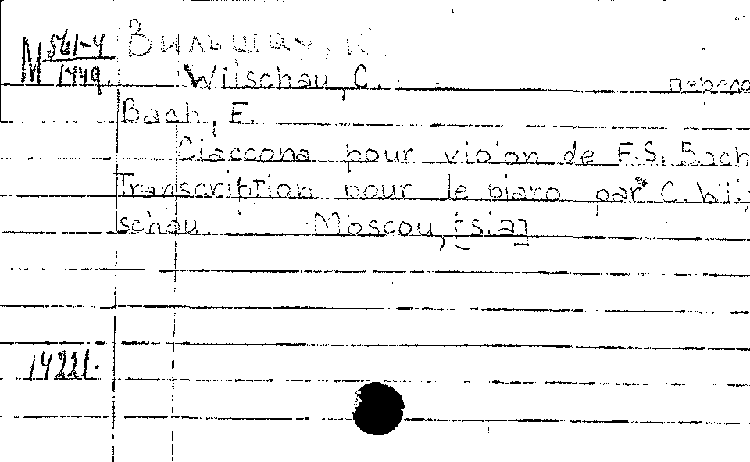 М 561-4
1449.
Вильшау, К.
Wilschau, C.
Bach, E.
Ciaccona pour violon de E.S. Bach
Transcription pour le piano par C. Wil-
schau. Moscou, [s.a]
14221.